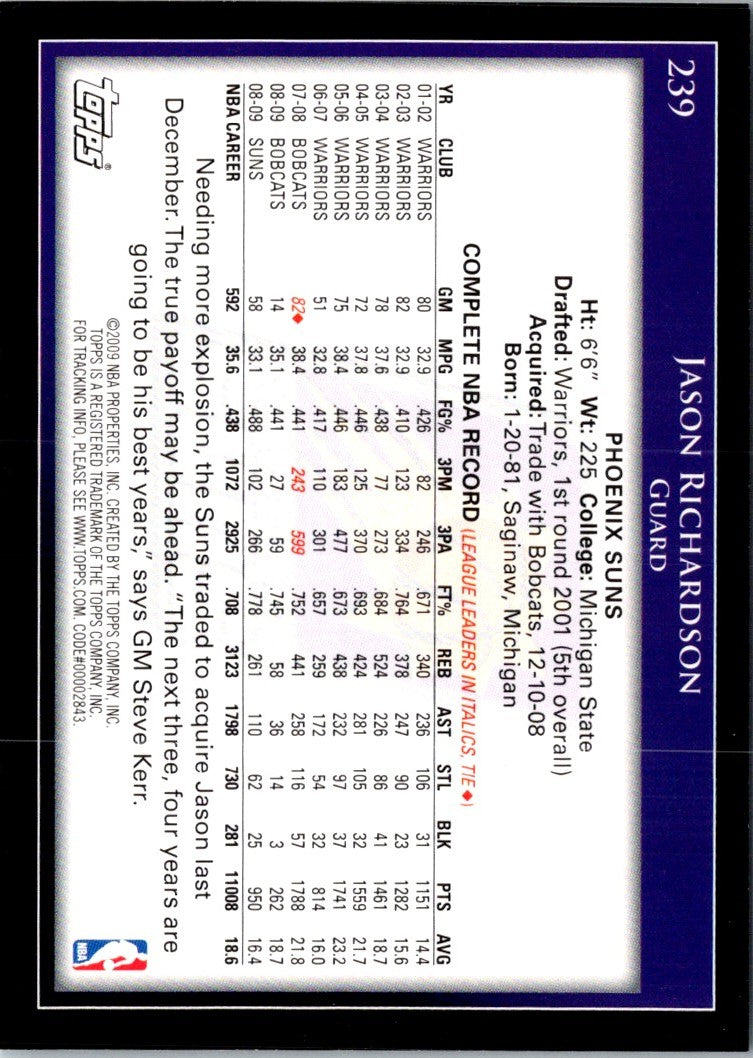 239
JASON RICHARDSON
GUARD
PHOENIX SUNS
Ht: 6'6" Wt: 225 College: Michigan State
Drafted: Warriors, 1st round 2001 (5th overall)
Acquired: Trade with Bobcats, 12-10-08
Born: 1-20-81, Saginaw, Michigan
COMPLETE NBA RECORD (LEAGUE LEADERS IN ITALICS, TIE ♦)
YR CLUB GM MPG FG% 3PM 3PA FT% REB AST STL BLK PTS AVG
01-02 WARRIORS 80 32.9 .426 82 246 .671 340 236 106 31 1151 14.4
02-03 WARRIORS 82 32.9 .410 123 334 .764 378 247 90 23 1282 15.6
03-04 WARRIORS 78 37.6 .438 77 273 .684 524 226 86 41 1461 18.7
04-05 WARRIORS 72 37.8 .446 125 370 .693 424 281 105 32 1559 21.7
05-06 WARRIORS 75 38.4 .446 183 477 .673 438 232 97 37 1741 23.2
06-07 WARRIORS 51 32.8 .417 110 301 .657 259 172 54 32 814 16.0
07-08 BOBCATS 82♦ 38.4 .441 243 599 .752 441 258 116 57 1788 21.8
08-09 BOBCATS 14 35.1 .441 27 59 .745 58 36 14 3 262 18.7
08-09 SUNS 58 33.1 .488 102 266 .778 261 110 62 25 950 16.4
NBA CAREER 592 35.6 .438 1072 2925 .708 3123 1798 730 281 11008 18.6
Needing more explosion, the Suns traded to acquire Jason last
December. The true payoff may be ahead. "The next three, four years are
going to be his best years," says GM Steve Kerr.
topps®
©2009 NBA PROPERTIES, INC. CREATED BY THE TOPPS COMPANY, INC.
TOPPS IS A REGISTERED TRADEMARK OF THE TOPPS COMPANY, INC.
FOR TRACKING INFO, PLEASE SEE WWW.TOPPS.COM. CODE#00002843.
NBA